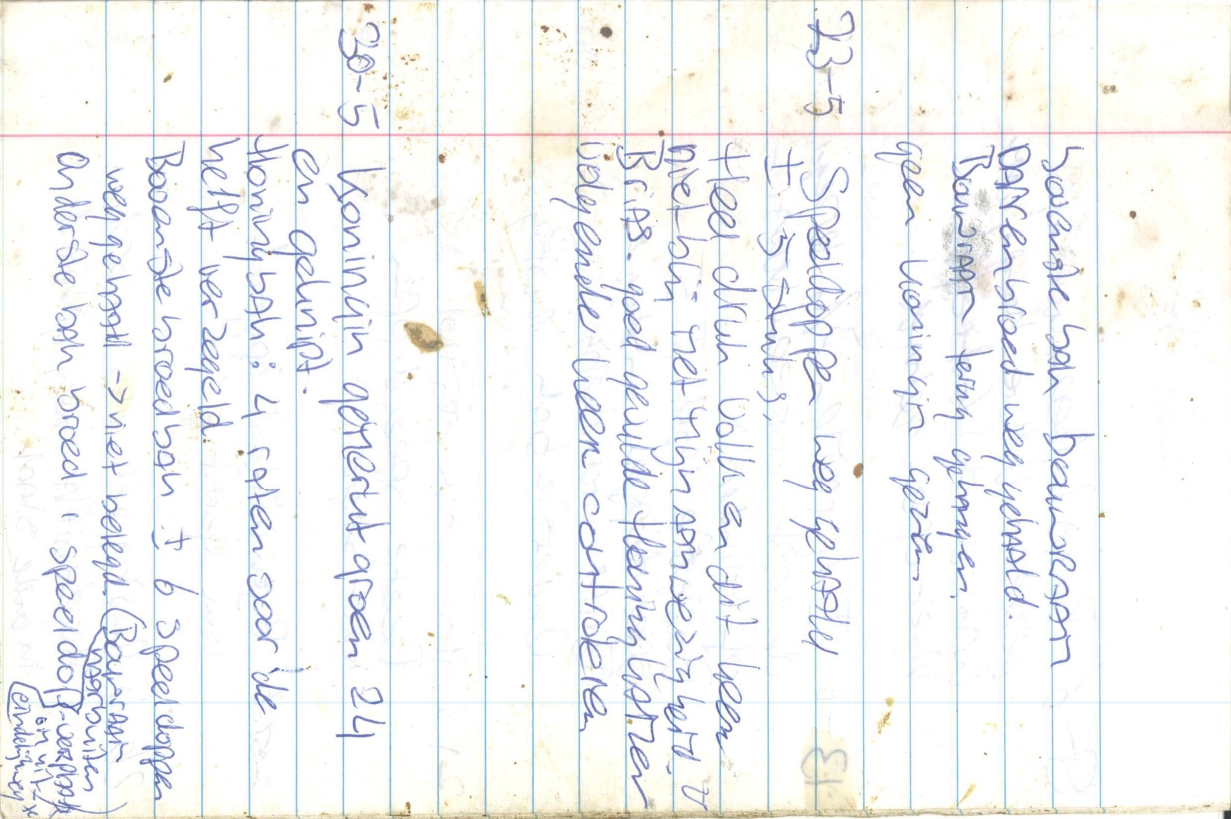 bovenste bak bouwraam
DARrenbroed weg gehaald.
Bouwraam terug gehangen
geen koningin gezien
23-5 Speeldoppen weg gehaald
± 5 stuks,
Heel druk volk en dit keer
niet blij met mijn aanwezigheid.
BriAS. goed gevulde Honingkamer
volgende keer controleren
30-5 Koningin gemerkt groen 24
en geknipt.
Honingbak: 4 raten voor de
helft verzegeld
Bovenste broedbak ± 6 speeldoppen
weg gehaald -> niet belegd. (Bouwraam
naar buiten
onderste bak broed 1 speeldop
eindelijk weg